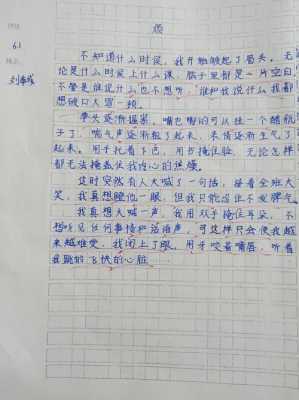 烦
6.1
不知道什么时候,我开始皱起了眉头。无
论是什么时候上什么课,脑子里都是一片空白,
不管是谁说什么也不想听,谁和我说什么我都
想破口大骂一顿。
拳头逐渐握紧,嘴巴嘟的可以挂一个醋瓶
子了,喘气声逐渐粗了起来,表情逐渐生气了
起来。用手托着下巴,用书掩住脸,无论怎样
都无法掩盖住我内心的焦燥。
这时突然有人大喊了一句话,接着全班大
笑,我真想瞪他一眼,但我只能忍住不发脾气。
我真想大喊一声,我用双手捂住耳朵,不
想听见任何事情和话语声,可这样只会使我越
来越难受,我闭上了眼。用牙咬着嘴唇,听着
我跳的飞快的心脏。